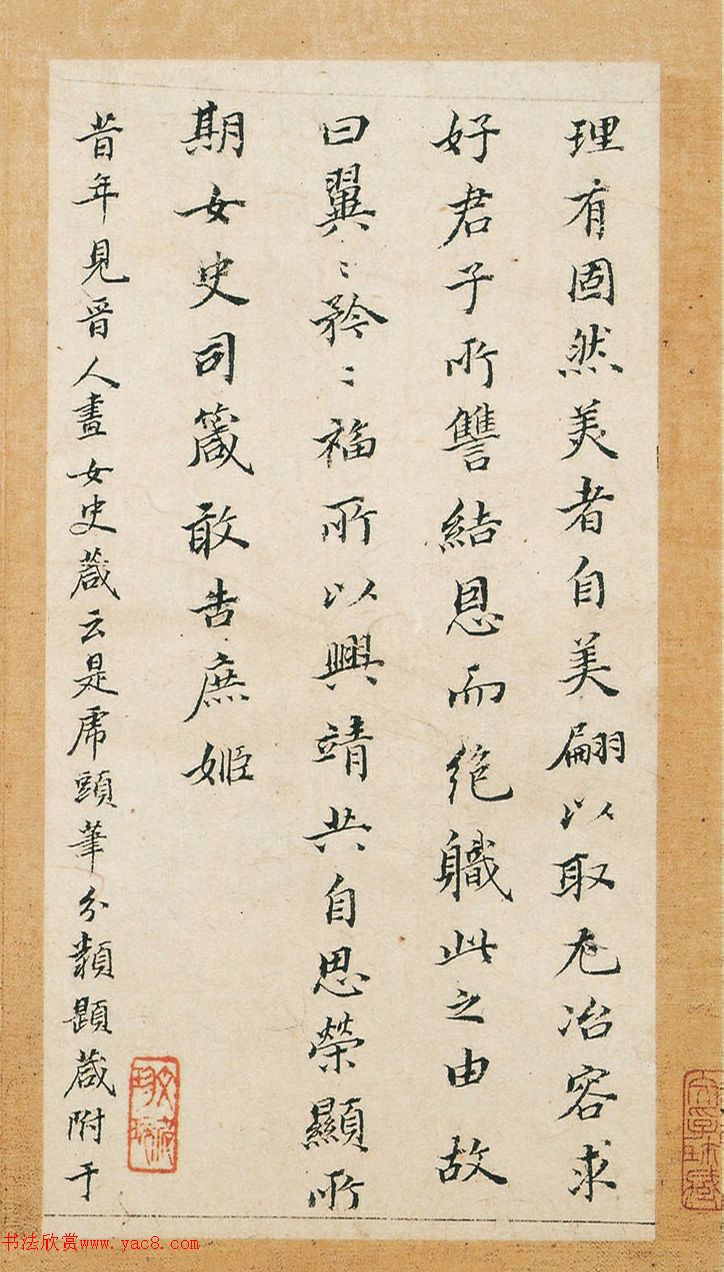 理有固然美者自美翩以取尤冶容求
好君子所讐結恩而絶軄此之由故
曰翼〻矜〻福所以興靖共自思榮顯所
期女史司箴敢告庶姬
昔年見晉人畫女史葴云是虎頭筆分類題葴附于
书法欣赏www.yac8.com